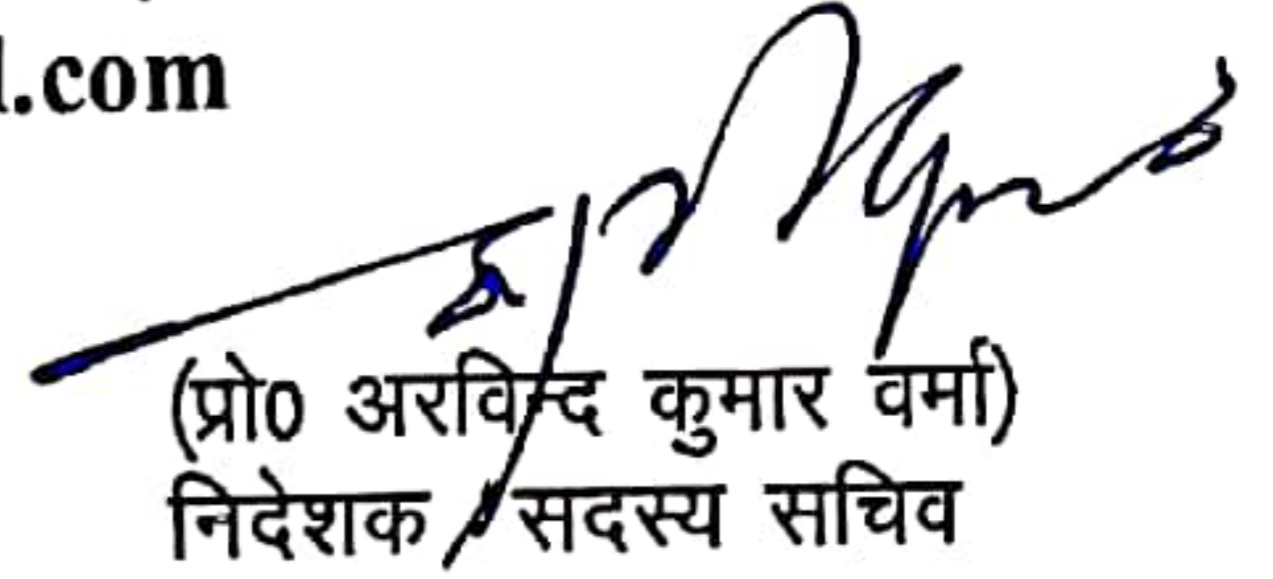 .com
(प्रो0 अरविन्द कुमार वर्मा)
निदेशक / सदस्य सचिव